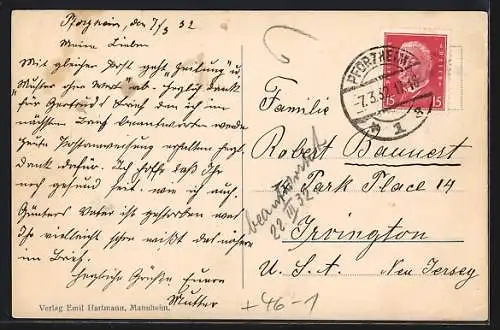 Pforzheim, den 7/3 32
Meine Lieben
Mit gleicher Post geht "Zeitung" u.
"Muster ohne Wert" ab. Herzlich Dank
für Gertruds Brief den ich im
nächsten Brief beantworten werde
heute Postanweisung erhalten herzl.
Dank dafür. Ich hoffe daß Ihr
noch gesund seit. wie ich auch.
Günters Vater ist gestorben was
Ihr vielleicht schon wißt das nähere
im Brief.
Herzliche Grüße Eurer
Mutter
Verlag Emil Hartmann, Mannheim.
PFORZHEIM
-7.3.32.11-
* 1 g
15 15
Familie
Robert Baunert
Park Place 14
Irvington
U. S. A. New Jersey
beantwortet
22 III 32
+46-1